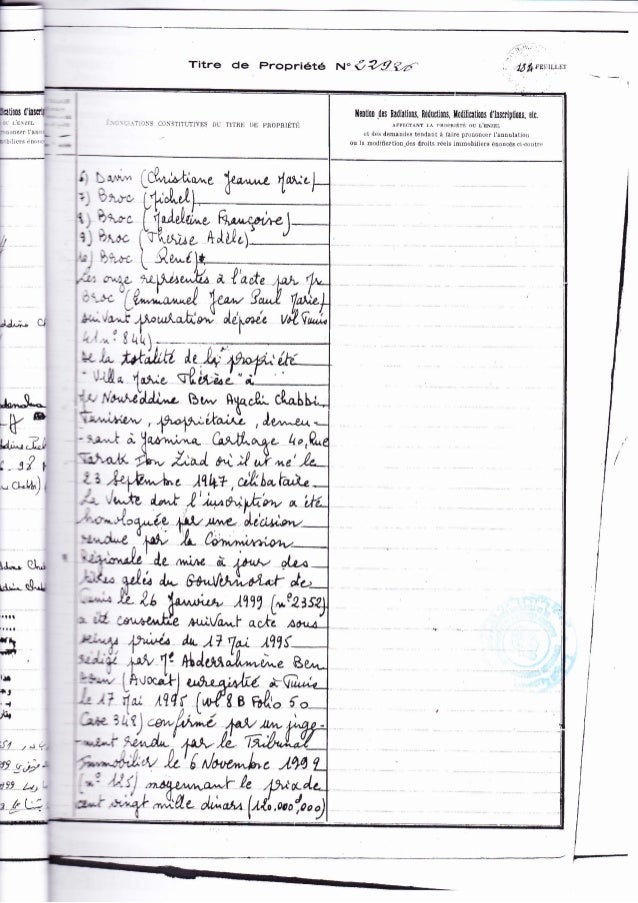 Titre de Propriété N° 22926
FEUILLET
ÉNONCIATIONS CONSTITUTIVES DU TITRE DE PROPRIÉTÉ
Mention des Radiations, Réductions, Modifications d'Inscriptions, etc.
AFFECTANT LA PROPRIÉTÉ OU L'ENZEL
et des demandes tendant à faire prononcer l'annulation
ou la modification des droits réels immobiliers énoncés ci-contre
6) Davin (Christiane Jeanne Marie)
7) Broc (Michel)
8) Broc (Madeleine Françoise)
9) Broc (Thérèse Adèle)
10) Broc (René)
Les onze représentés à l'acte par Mr
Broc (Emmanuel Jean Paul Marie)
suivant procuration déposée Vol Tunis
n° 844)
de la totalité de la propriété
"Villa Marie Thérèse" à
Mr Noureddine Ben Ayachi Chabbi,
Tunisien, propriétaire, demeu-
-rant à Yasmina Carthage 40, Rue
Tarak Ibn Ziad où il est né le
23 Septembre 1947, célibataire.
La Vente dont l'inscription a été
homologuée par une décision
rendue par la Commission
Régionale de mise à jour des
titres gelés du Gouvernorat de
Tunis le 26 Janvier 1999 (n°2352)
a été consentie suivant acte sous
seings privés du 17 Mai 1995
rédigé par Me Abderrahmène Ben
(Avocat) enregistré à Tunis
le 17 Mai 1995 (vol 8 B Folio 50
Case 348) confirmé par un juge-
-ment rendu par le Tribunal
Immobilier le 6 Novembre 1999
(n° 125) moyennant le prix de
cent vingt mille dinars (120.000d,000)